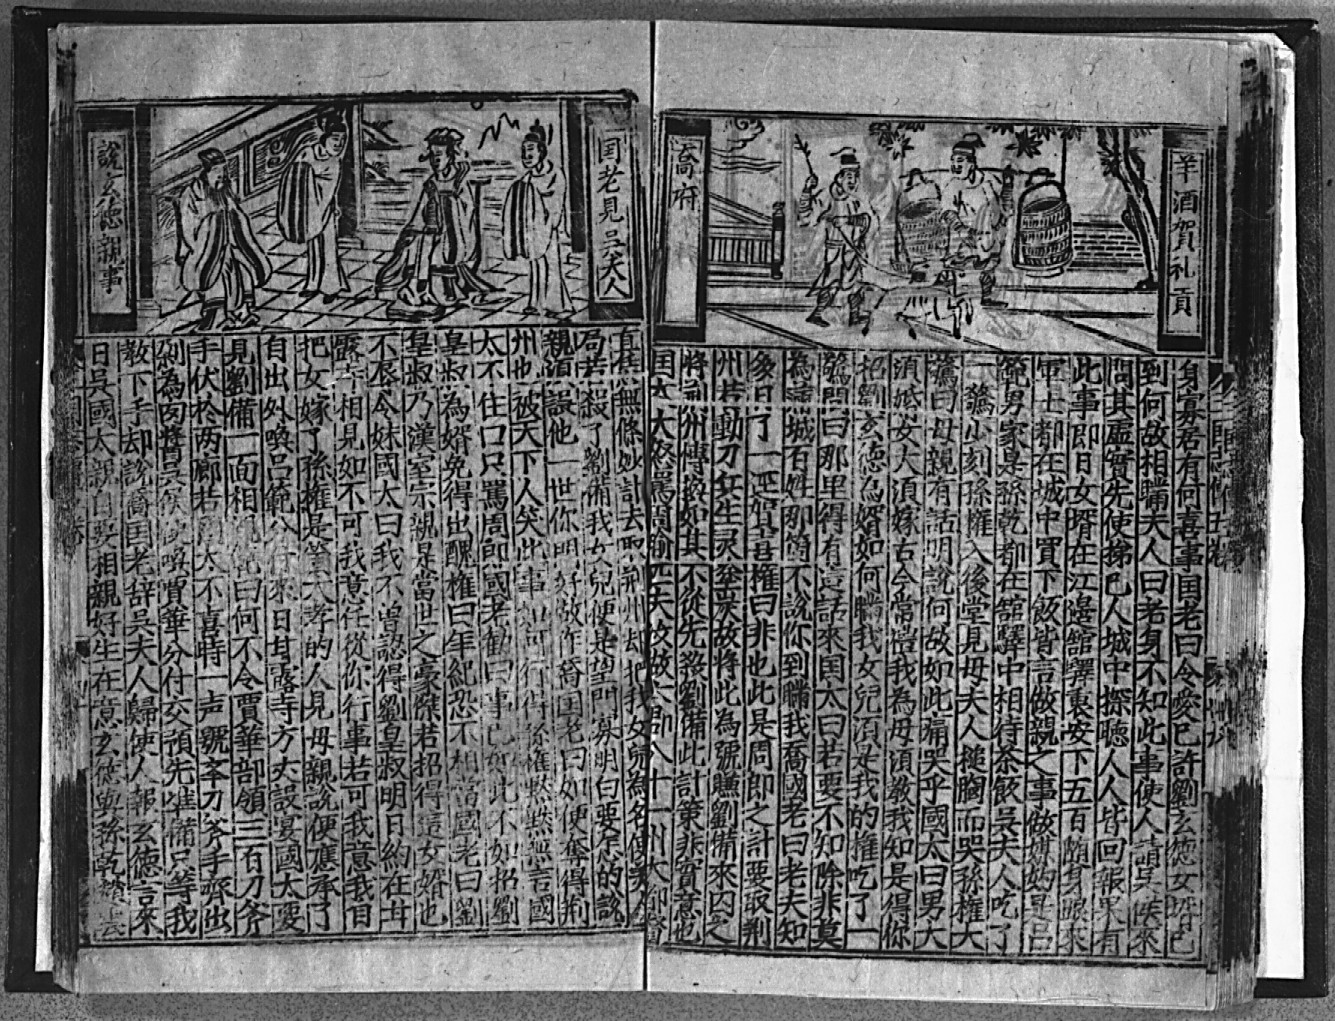 羊酒賀礼貢
喬府
身寡君有何喜事国老曰令愛已許劉玄德女壻已
到何故相瞞夫人曰老身不知此事使人請吳侯來
問其虛實先使梯己人城中探聽人人皆回報果有
此事即日女壻在江邊舘驛裏安下五百随身跟來
軍士都在城中買下飯皆言做親之事做媒的是吕
範男家是孫乾都在舘驛中相待茶飲吳夫人吃了
一驚少刻孫權入後堂見母夫人搥胸而哭孫權大
驚曰母親有話明說何故如此痛哭乎國太曰男大
須婚女大須嫁古今常禮我為母須教我知是得你
把劉玄德為婿如何瞞我女兒須是我的權吃了一
驚問曰那里得有這話來国太曰若要不知除非莫
為滿城百姓那箇不說你到瞞我喬國老曰老夫知
後日了一巫賀喜權曰非也此是周郎之計要取荆
州若動刀兵生灵塗炭故將此為號賺劉備來囚之
將荆州傳換如其不從先殺劉備此計策非實意也
国太大怒罵周瑜匹夫汝做六郡八十一州大都督
国老見吳夫人
說玄德親事
直恁無條妙計去取荆州却把我女兒為名使美人
局若殺了劉備我女兒便是望門寡明白要怎的說
親須誤他一世你明好做作喬国老曰如便奪得荆
州也被天下人笑此事如何行得孫權黙黙無言國
太不住口只罵周郎國老勸曰事已如此不如招劉
皇叔為婿免得出醜權曰年紀恐不相當國老曰劉
皇叔乃漢室宗親是當世之豪傑若招得這女婿也
不辱令妹國太曰我不曾認得劉皇叔明日約在甘
露寺相見如不可我意任從你行事若可我意我自
把女嫁了孫權是箇大孝的人見母親說便應承了
自出外喚吕範分付來日甘露寺方丈設宴國太要
見劉備一面相視範曰何不令賈華部領三百刀斧
手伏於两廊若國太不喜時一声號本刀斧手齊出
剁為肉醬吳侯喚賈華分付交預先准備只等我
教下手却說喬国老辞吳夫人歸使人報玄德言來
日吳國太親自要相親好生在意玄德與孫乾趙雲